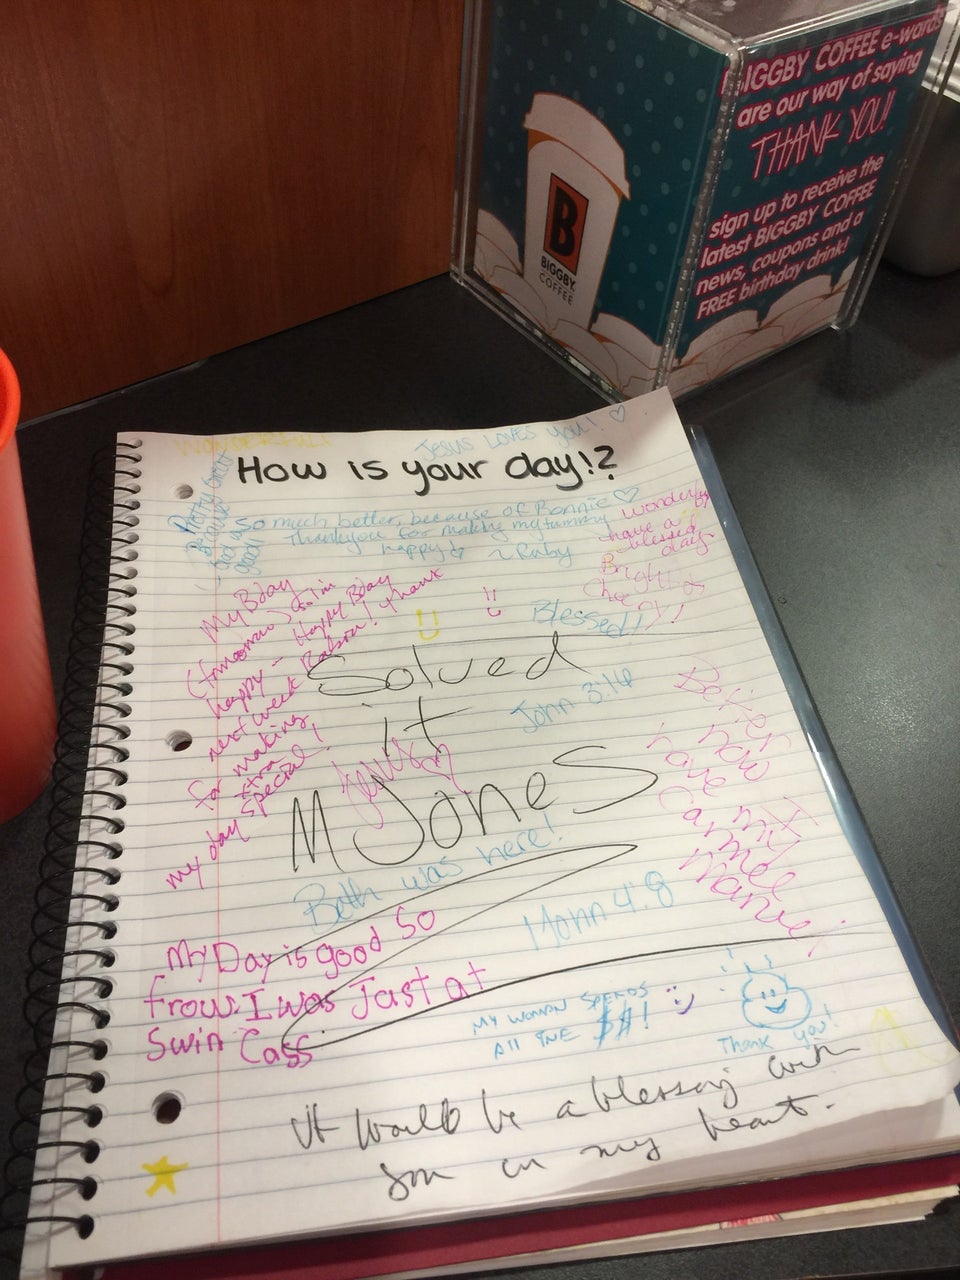 BIGGBY COFFEE e-wards
are our way of saying
THANK YOU!
sign up to receive the
latest BIGGBY COFFEE
news, coupons and a
FREE birthday drink!
B
BIGGBY
COFFEE
WONDERFUL!
JESUS LOVES YOU!
How is your day!?
Pretty Great
Because
food was
good!
So much better, because of Bonnie
Thankyou for making my tummy
happy
~ Ruby
Wonderful
have a
blessed
day
Bright &
Cheery!
Blessed!
My Bday
(tomorrow) so im
happy - Happy Bday
next week
Thank
for making
my day
xtra
special!
Solved
it
M JoneS
John 3:16
Better
now
I
have my
Carmel
Marvel
Beth was here!
1 John 4:8
My Day is good So
frow. I was Jast at
Swin Cass
MY WOMAN SPENDS
All THE $$!
Thank you!
it would be a blessing with
son in my heart.